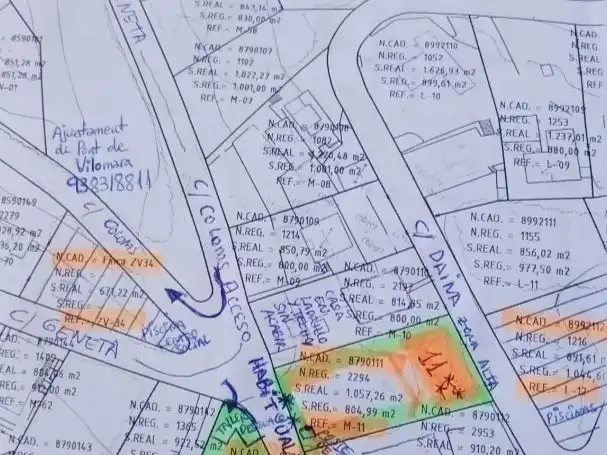 8590
851,28 m2
851,28 m
N-01
NETA
S.REAL = 843,14 m
S.REG.= 830,00 m2
REF.= M-58
N.CAD. = 8790107
N.REG. = 1102
S.REAL = 1.022,27 m2
S.REG.= 1.001,00 m2
REF.= M-07
N.CAD. = 8992110
N.REG. = 1052
S.REAL = 1.626,93 m2
S.REG.= 899,61 m2
REF.= L-10
N.CAD
N.REG.
S.REAL
S.REG.
REF
N.CAD. = 8992109
N.REG. = 1253
S.REAL = 1.237,01 m2
S.REG.= 880,00 m2
REF.= L-09
Ajuntament
de Pont de
Vilomara
938318811
N.CAD. = 8790108
N.REG. = 1082
S.REAL = 1.220,48 m2
S.REG.= 1.001,00 m2
REF.= M-08
8590149
2279
928,92 m2
36,20 m2
-70
C/ COLOMS
C/ COLOMS ACCESO HABITUAL
N.CAD. = Finca ZV34
N.REG. =
S.REAL = 671,22 m2
S.REG.=
REF.= ZV-34
N.CAD. = 8790109
N.REG. = 1214
S.REAL = 850,79 m2
S.REG.= 800,00 m2
REF.= M-09
C/ DAINA ZONA ALTA
N.CAD. = 8992111
N.REG. = 1155
S.REAL = 856,02 m2
S.REG.= 977,50 m2
REF.= L-11
N.CAD. = 8790110
N.REG. = 2197
S.REAL = 814,85 m2
S.REG.= 800,00 m2
REF.= M-10
CASA
EN
LADRILLO
SIN
C/ GENETA
PISCINA
N.CAD. = 8992112
N.REG. = 1216
S.REAL = 891,61
S.REG.= 844,60
REF.= L-12
PISCINAS
N.REG. = 1409
REF.= M-62
N.CAD. = 8790111
N.REG. = 2294
S.REAL = 1.057,26 m2
S.REG.= 804,99 m2
REF.= M-11
11
N.CAD. = 8790142
N.REG. = 1365
S.REAL = 972,52 m2
TALLER
N.CAD. = 8790112
N.REG. = 2953
S.REAL = 910,20 m2
N.CAD. = 8790143